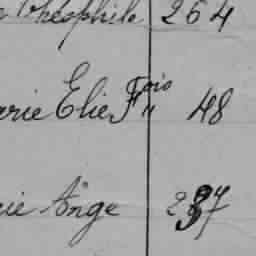 Théophile 264
Elie Fois 48
Ange 237